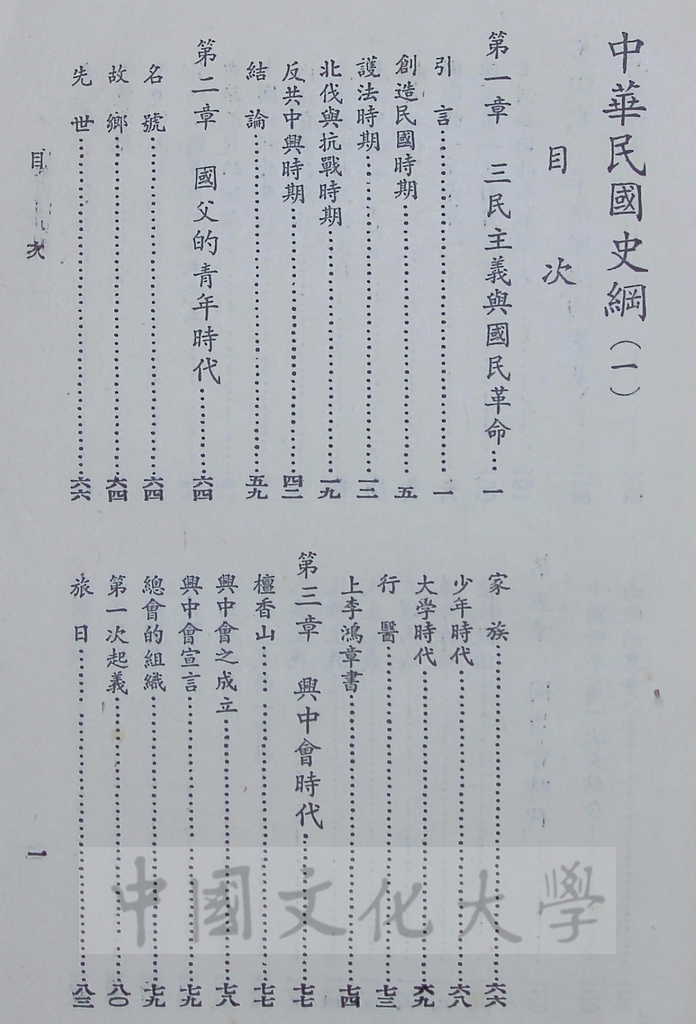 中華民國史綱（一）
目　次
第一章　三民主義與國民革命…一
引　言…一
創造民國時期…五
護法時期…一二
北伐與抗戰時期…一九
反共中興時期…四二
結　論…五九
第二章　國父的青年時代…六四
名　號…六四
故　鄉…六四
先　世…六六
家　族…六六
少年時代…六八
大学時代…六九
行　醫…七三
上李鴻章書…七四
第三章　興中會時代…七七
檀香山…七七
興中會之成立…七八
興中會宣言…七九
總會的組織…七九
第一次起義…八〇
旅　日…八三
目　次
一
中國文化大學